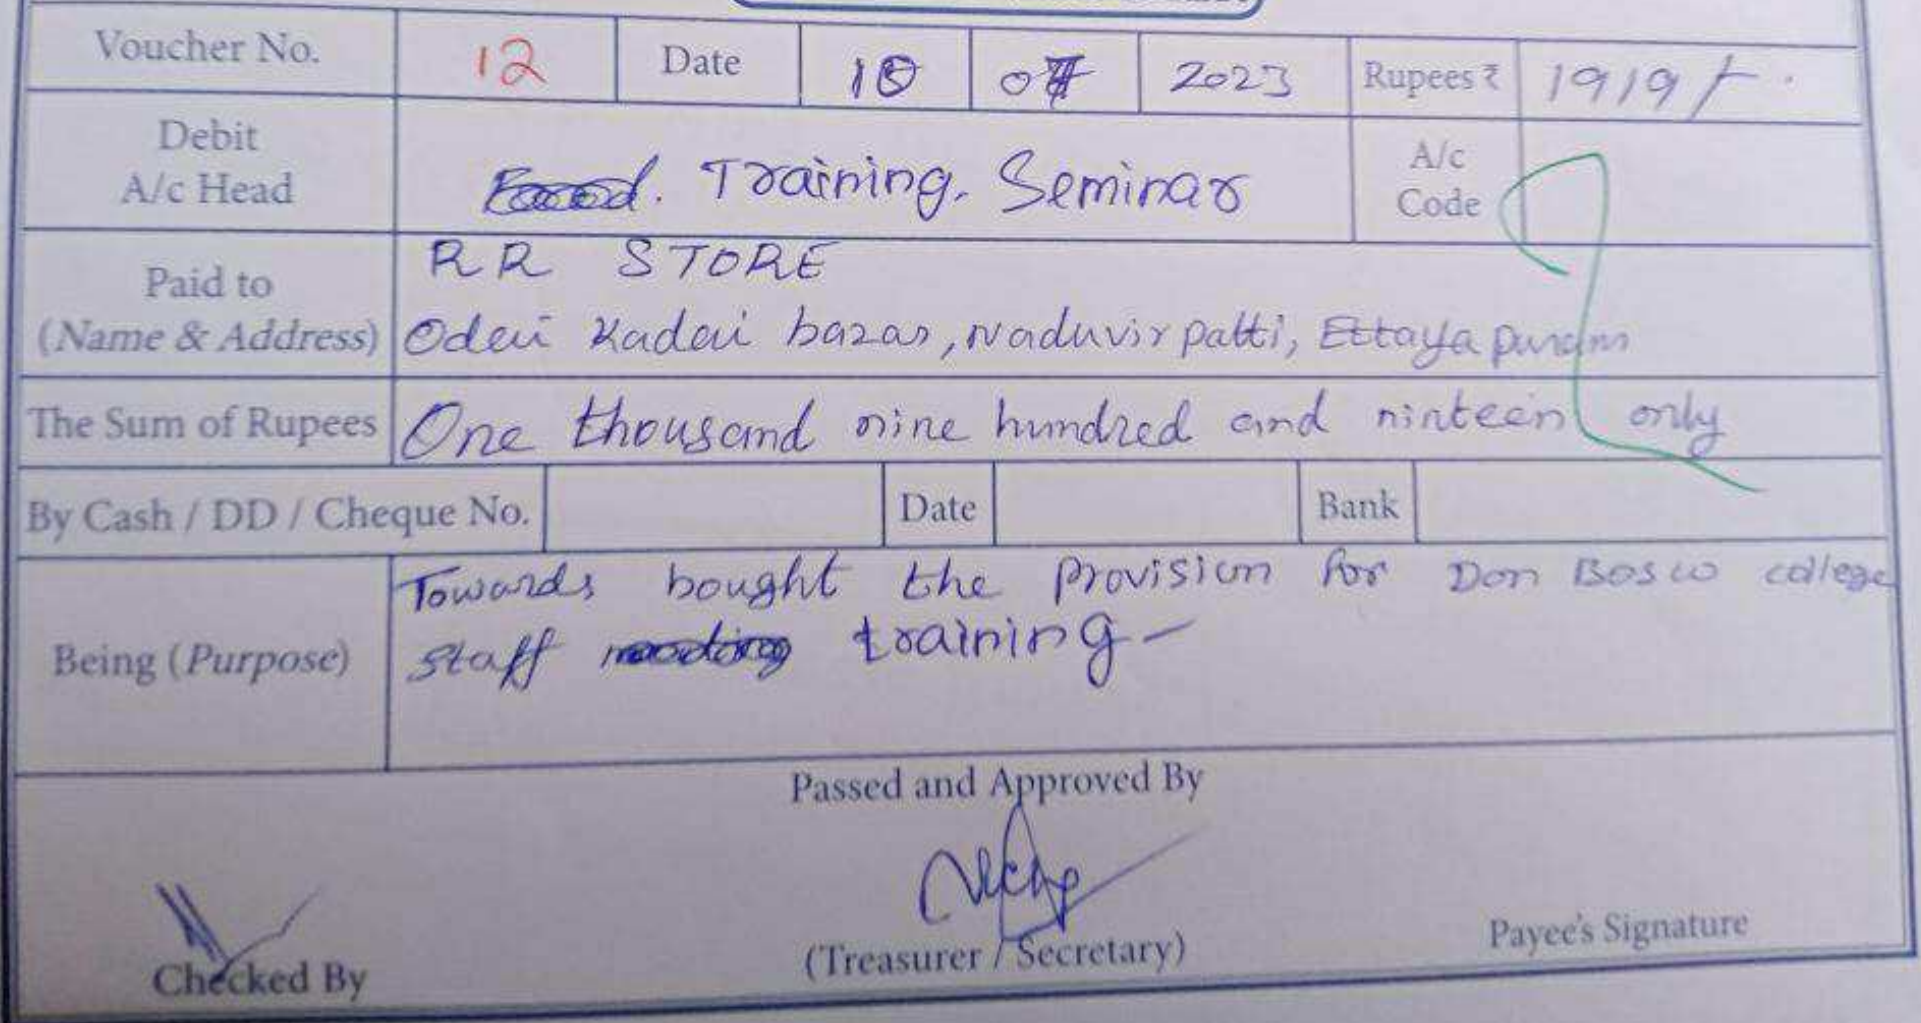 Voucher No. 12 Date 10 07 2023 Rupees ₹ 1919/-
Debit
A/c Head
Training. Seminar
A/c
Code
Paid to
(Name & Address)
RR STORE
Odai Kadai bazar, Naduvirpatti, Ettayapuram
The Sum of Rupees One thousand nine hundred and ninteen only
By Cash / DD / Cheque No. Date Bank
Being (Purpose)
Towards bought the provision for Don Bosco college
staff training-
Passed and Approved By
(Treasurer / Secretary)
Payee's Signature
Checked By